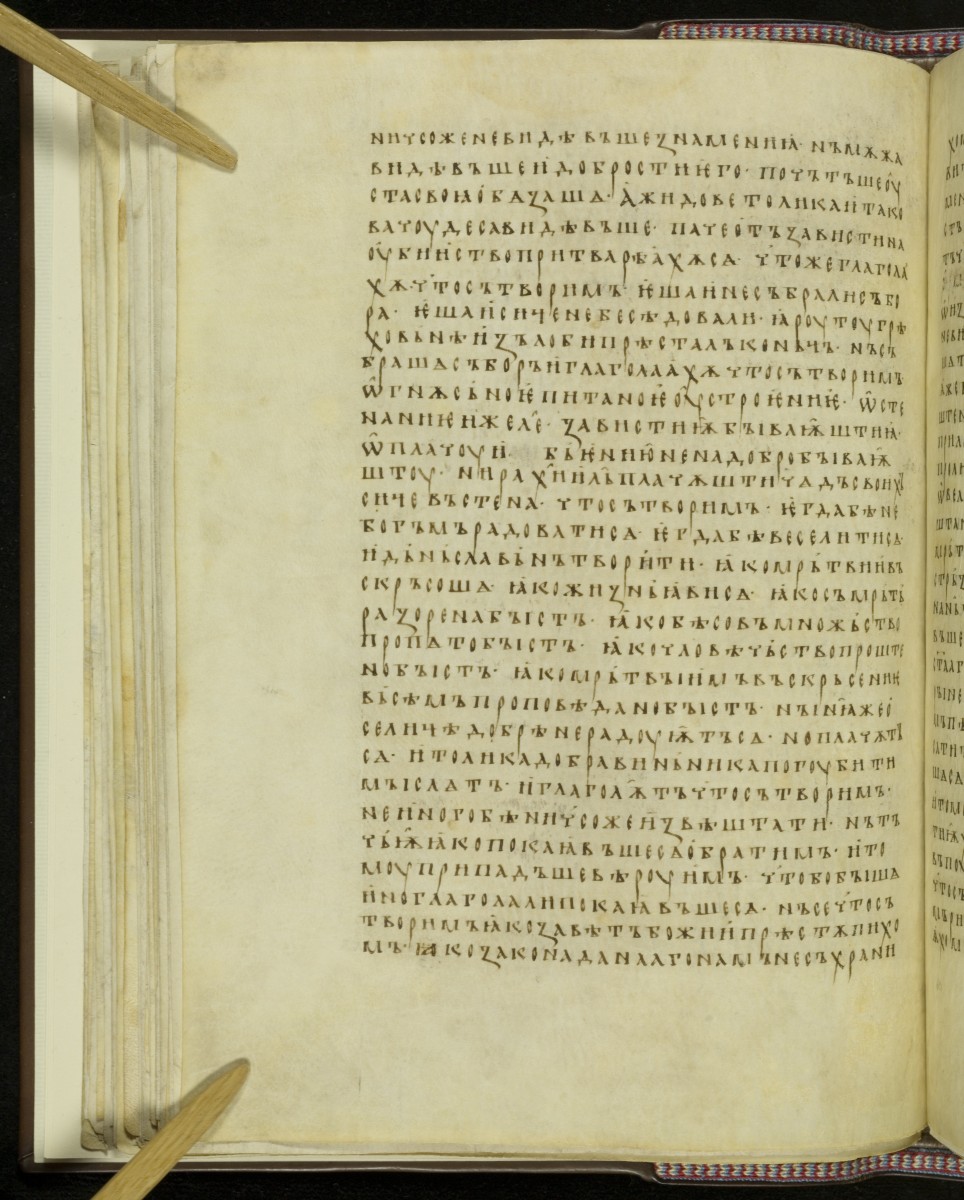 ничсоженевидѣвъшезнамениꙗ· нъмѫжа
видѣвъшеидобростиѥго· почьтъшеоу
стасвоꙗобѧзаша· Ажидоветоликаитако
вачоудесавидѣвъше· пачеотъзавистина
оубииствопритварѣахѫсѧ· чтожеглагола
хѫ· чтосътворимъ· ѥшаинесъбралисъбо
ра· ѥшаисиценебесѣдовали· ꙗроутоугрѣ
ховьнѣизълобипрѣсталъконьць· нъсъ
брашасъборъиглаголаахѫчтосътворимъ
ѡгнѫсьноѥпитаноѥоустроѥниѥ· ѡсте
наниѥижелѣ· завистиѭбываѭштиꙗ·
ѡплачоуи· въиниюненадобробываѭ
штоу· нирахииліплачѫштичадъсвоихъ
сицевъстена· чтосътворимъ· ѥгдабѣне
богъмърадоватисѧ· ѥгдабѣвеселитисѧ·
идьньславьнътворити· ꙗкомрьтвиивъ
скрьсоша· ꙗкожизньꙗвисѧ· ꙗкосъмрьть
разоренабыстъ· ꙗкобѣсовъмножьство
пропѧтобыстъ· ꙗкочловѣчьствопроште
нобыстъ· ꙗкомрьтвыимъвъскрьсениѥ
вьсѣмъпроповѣданобыстъ· нынꙗжео
селицѣдобрѣнерадоуѭтъсѧ· ноплачѫтъ
сѧ· итоликадобравиньникапогоубити
мыслѧтъ· иглаголѭтъчтосътворимъ·
неиногобѣничсожеизвѣштати· нътъ
чьѭꙗкопокаꙗвъшесѧобратимъ· ито
моуприпадъшевѣроуимъ· чтобобыша
иноглаголалипокаꙗвъшесѧ· нъсечтосъ
творимъꙗкозавѣтъбожиипрѣстѫпихо
мъ· ꙗкозаконаданаагонамънесъхрани